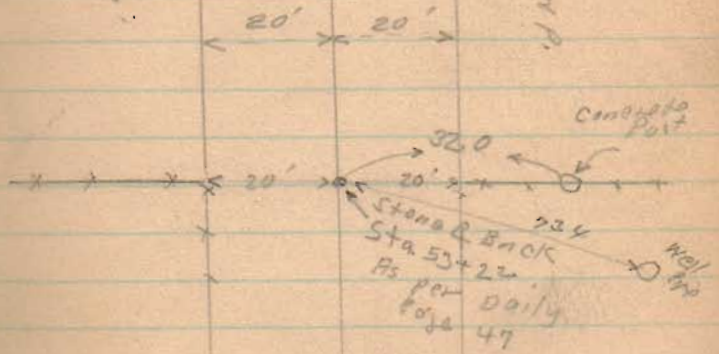 20' 20'
P.
Concrete
Post
32.0
20' 20'
Stone & Brick
73.4
Sta. 53+22
As per Daily
Page 47
Well